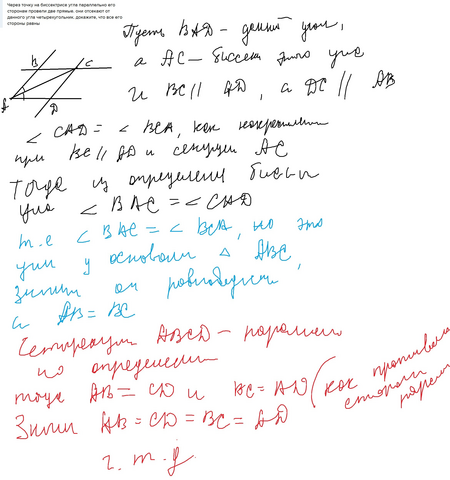 Через точку на биссектрисе угла параллельно его
сторонам провели две прямые. они отсекают от
данного угла четырехугольник. докажите, что все его
стороны равны
Пусть BAD – данный угол,
B C
а AC – биссек этого угла
A D
и BC || AD, а DC || AB
∠ CAD = ∠ BCA, как накрест
при BC || AD и секущей AC
Тогда из определения бисс
угла ∠ BAC = ∠ CAD
т.е ∠ BAC = ∠ BCA, но это
углы у основания △ ABC
значит он равнобедрен,
и AB = BC
Четырехуг ABCD – паралл
по определен
тогда AB = CD и BC = AD (как противоп
стороны
парал
Значит AB = CD = BC = AD
ч. т. д.